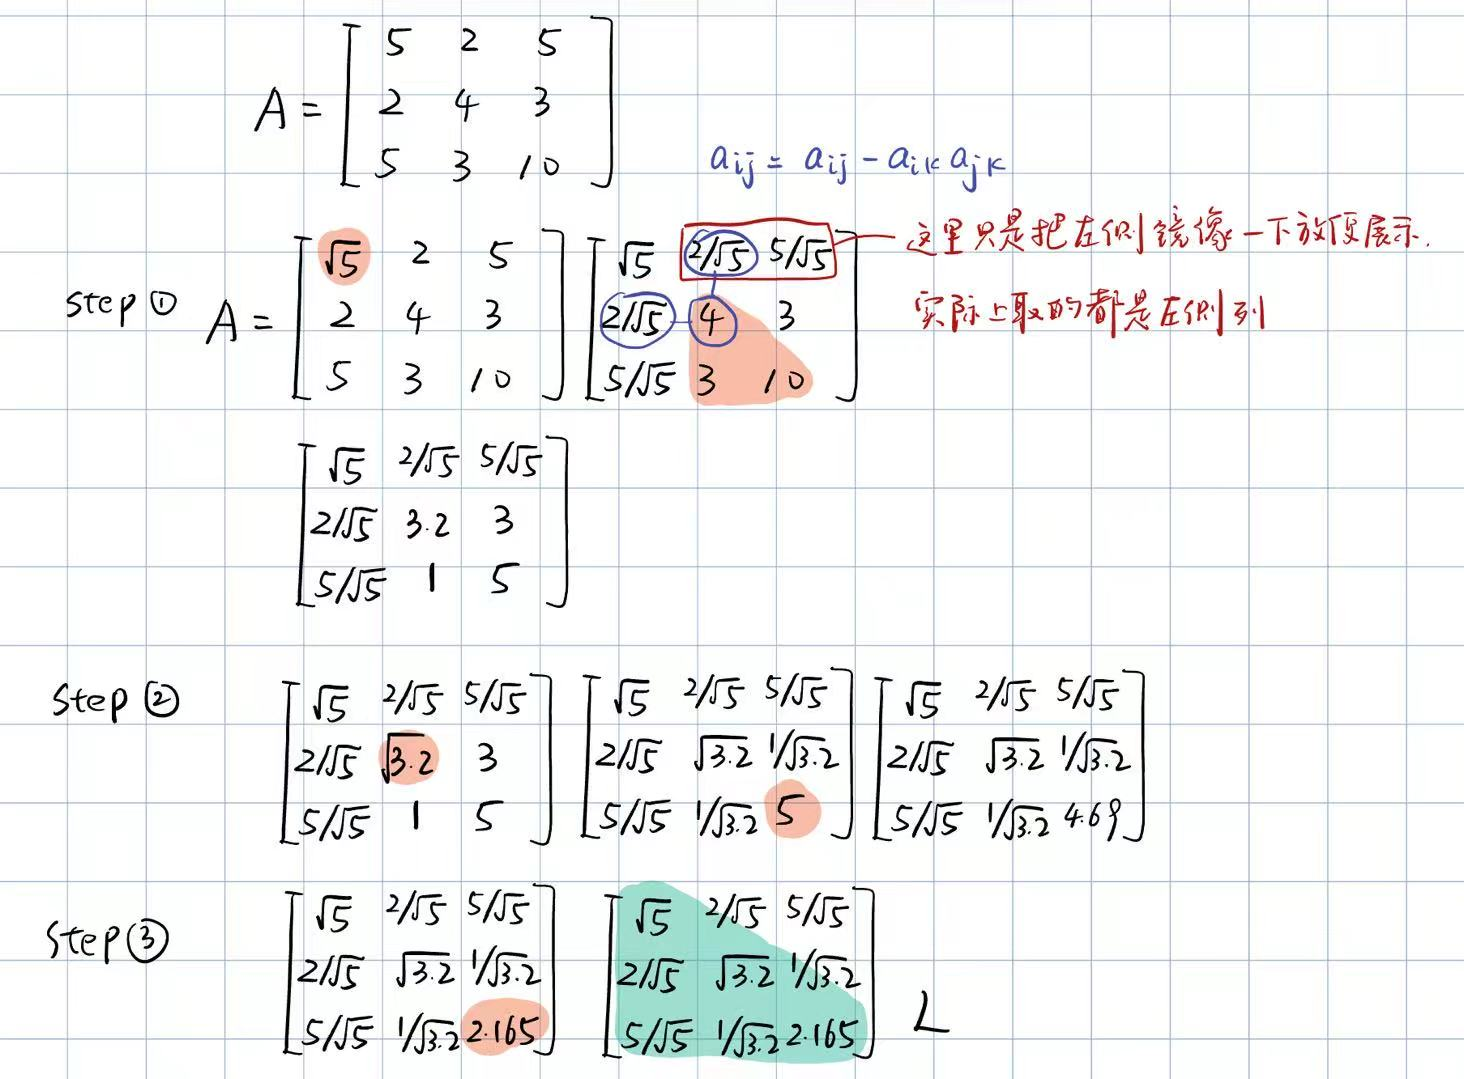 A = [ 5 2 5
2 4 3
5 3 10 ]
aij = aij - aik ajk
Step ① A = [ √5 2 5
2 4 3
5 3 10 ]
[ √5 2/√5 5/√5
2/√5 4 3
5/√5 3 10 ]
这里只是把左侧镜像一下放便展示.
实际上取的都是左侧列
[ √5 2/√5 5/√5
2/√5 3.2 3
5/√5 1 5 ]
Step ②
[ √5 2/√5 5/√5
2/√5 √3.2 3
5/√5 1 5 ]
[ √5 2/√5 5/√5
2/√5 √3.2 1/√3.2
5/√5 1/√3.2 5 ]
[ √5 2/√5 5/√5
2/√5 √3.2 1/√3.2
5/√5 1/√3.2 4.69 ]
Step ③
[ √5 2/√5 5/√5
2/√5 √3.2 1/√3.2
5/√5 1/√3.2 2.165 ]
[ √5 2/√5 5/√5
2/√5 √3.2 1/√3.2
5/√5 1/√3.2 2.165 ]
L